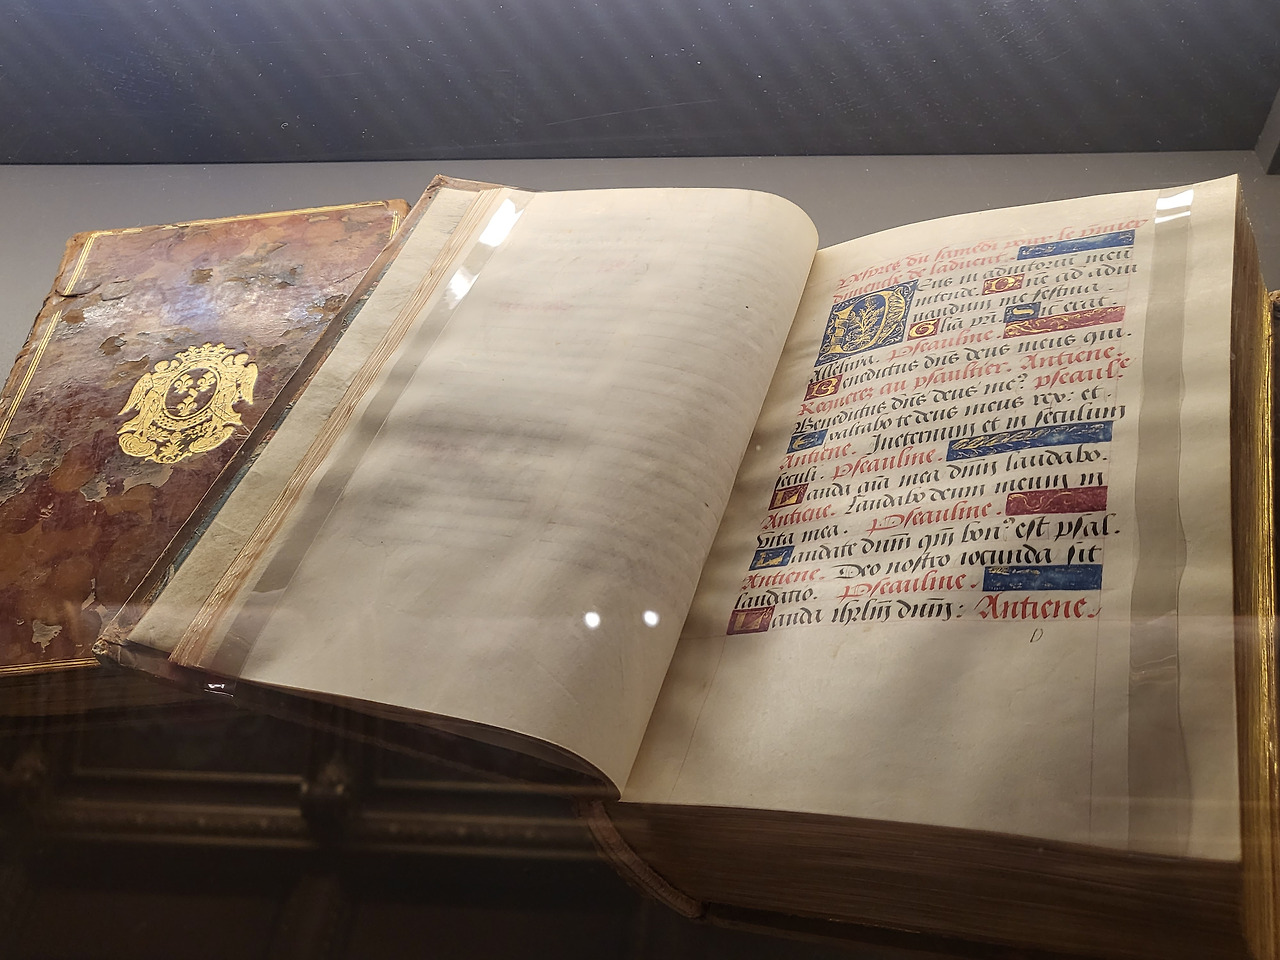 Vespres du samedi pour le pmier
dimenche de laduent.
DEus in adiutoriū meū
intende. Dne ad adiu
uandum me festina.
Glīa pri. Sic erat.
Alleluya. Pseaulme.
Benedictus dn̄s deus meus qui.
Requerez au psaultier. Antiene.
Benedictus dn̄s deus me? pseaul?e
Exaltabo te deus meus rex: et
Antiene. Ineternum et in seculum
seculi. Pseaulme.
Lauda aīa mea dnm̄ laudabo.
Antiene. Laudabo deum meum in
vita mea. Pseaulme.
Laudate dnm̄ qm̄ bon? est psal.
Antiene. Deo nostro iocunda sit
laudatio. Pseaulme.
Lauda ihrl̄m dnm̄: Antiene.